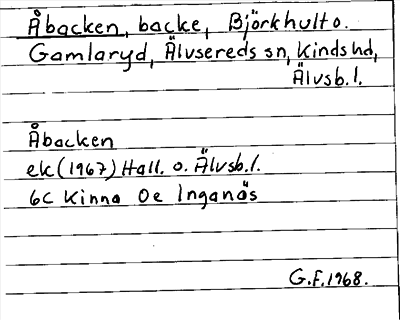 Åbacken, backe, Björkhult o.
Gamlaryd, Älvsereds sn, Kinds hd,
Älvsb. l.
Åbacken
ek (1967) Hall. o. Älvsb. l.
6C Kinna Oe Inganäs
G.F. 1968.